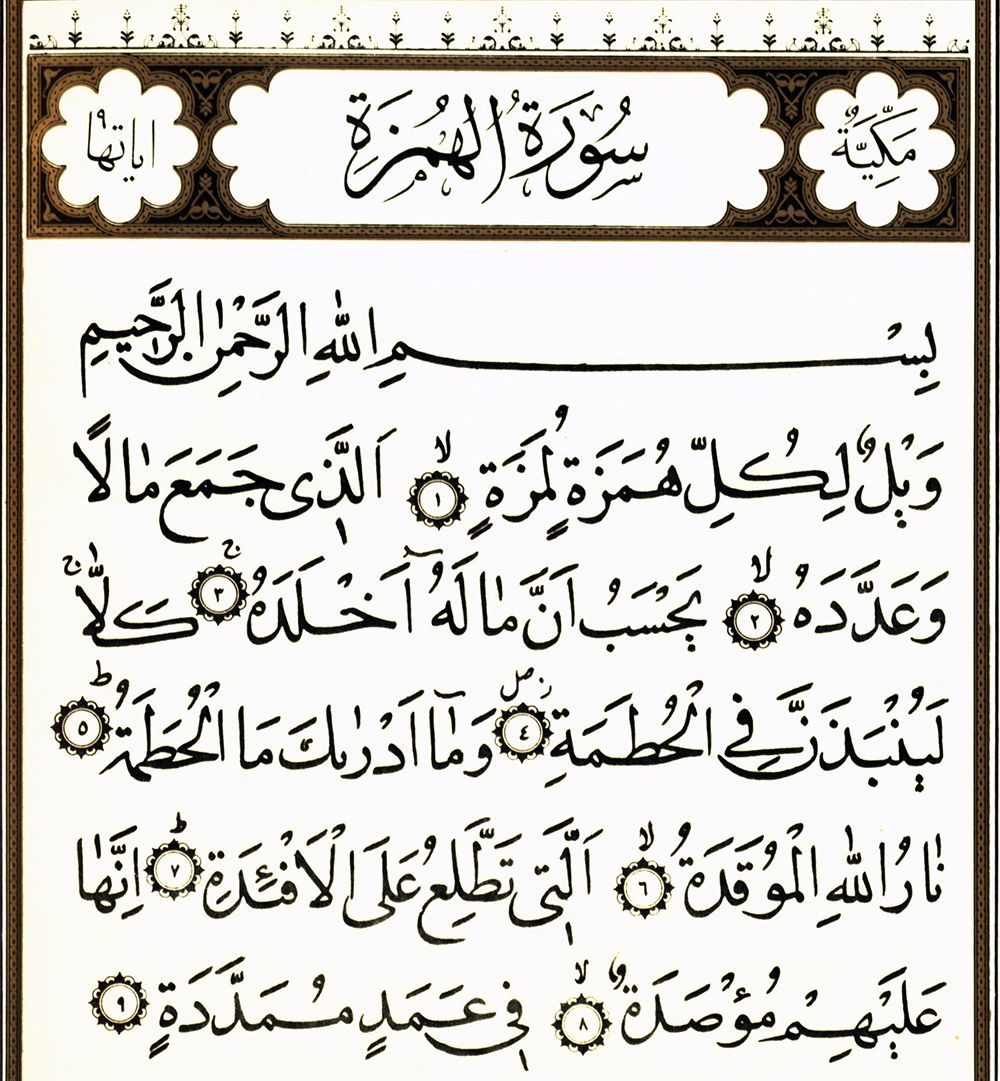 مَكِّيَّةٌ سُورَةُ الْهُمَزَةِ اٰيَاتُهَا
بِسْمِ اللّٰهِ الرَّحْمٰنِ الرَّحِيمِ
وَيْلٌ لِكُلِّ هُمَزَةٍ لُمَزَةٍ ۙ ﴿١﴾ اَلَّذِى جَمَعَ مَالًا
وَعَدَّدَهُ ۙ ﴿٢﴾ يَحْسَبُ اَنَّ مَالَهُٓ اَخْلَدَهُ ۚ ﴿٣﴾ كَلَّا ۚ
لَيُنْبَذَنَّ فِي الْحُطَمَةِ ﴿٤﴾ وَمَٓا اَدْرٰيكَ مَا الْحُطَمَةُ ۜ ﴿٥﴾
نَارُ اللّٰهِ الْمُوقَدَةُ ۙ ﴿٦﴾ اَلَّتِى تَطَّلِعُ عَلَى الْاَفْئِدَةِ ۜ ﴿٧﴾ اِنَّهَا
عَلَيْهِمْ مُؤْصَدَةٌ ۙ ﴿٨﴾ فِى عَمَدٍ مُمَدَّدَةٍ ﴿٩﴾